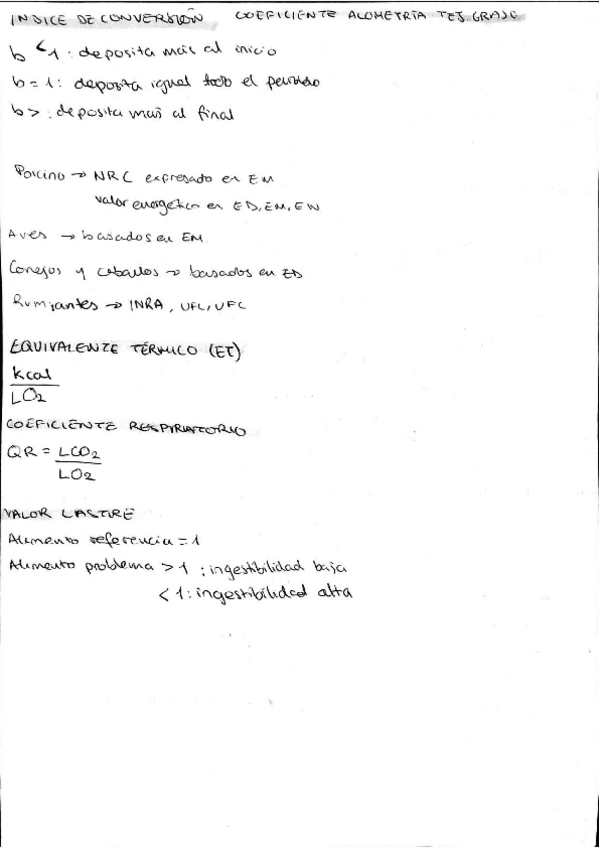 INDICE DE CONVERSIÓN COEFICIENTE ALOMETRÍA TEJ. GRASO
b < 1: deposita mais al inicio
b = 1: deposita igual todo el periodo
b > : deposita mas al final
Porcino → NRC expresado en EM
valor energetico en ED, EM, EN
Aves → basados en EM
Conejos y caballos → basados en ED
Rumiantes → INRA, UFL, UFC
EQUIVALENTE TÉRMICO (ET)
kcal
LO2
COEFICIENTE RESPIRATORIO
QR = LCO2
LO2
VALOR LASTRE
Alimento referencia = 1
Alimento problema > 1 : ingestibilidad baja
< 1: ingestibilidad alta